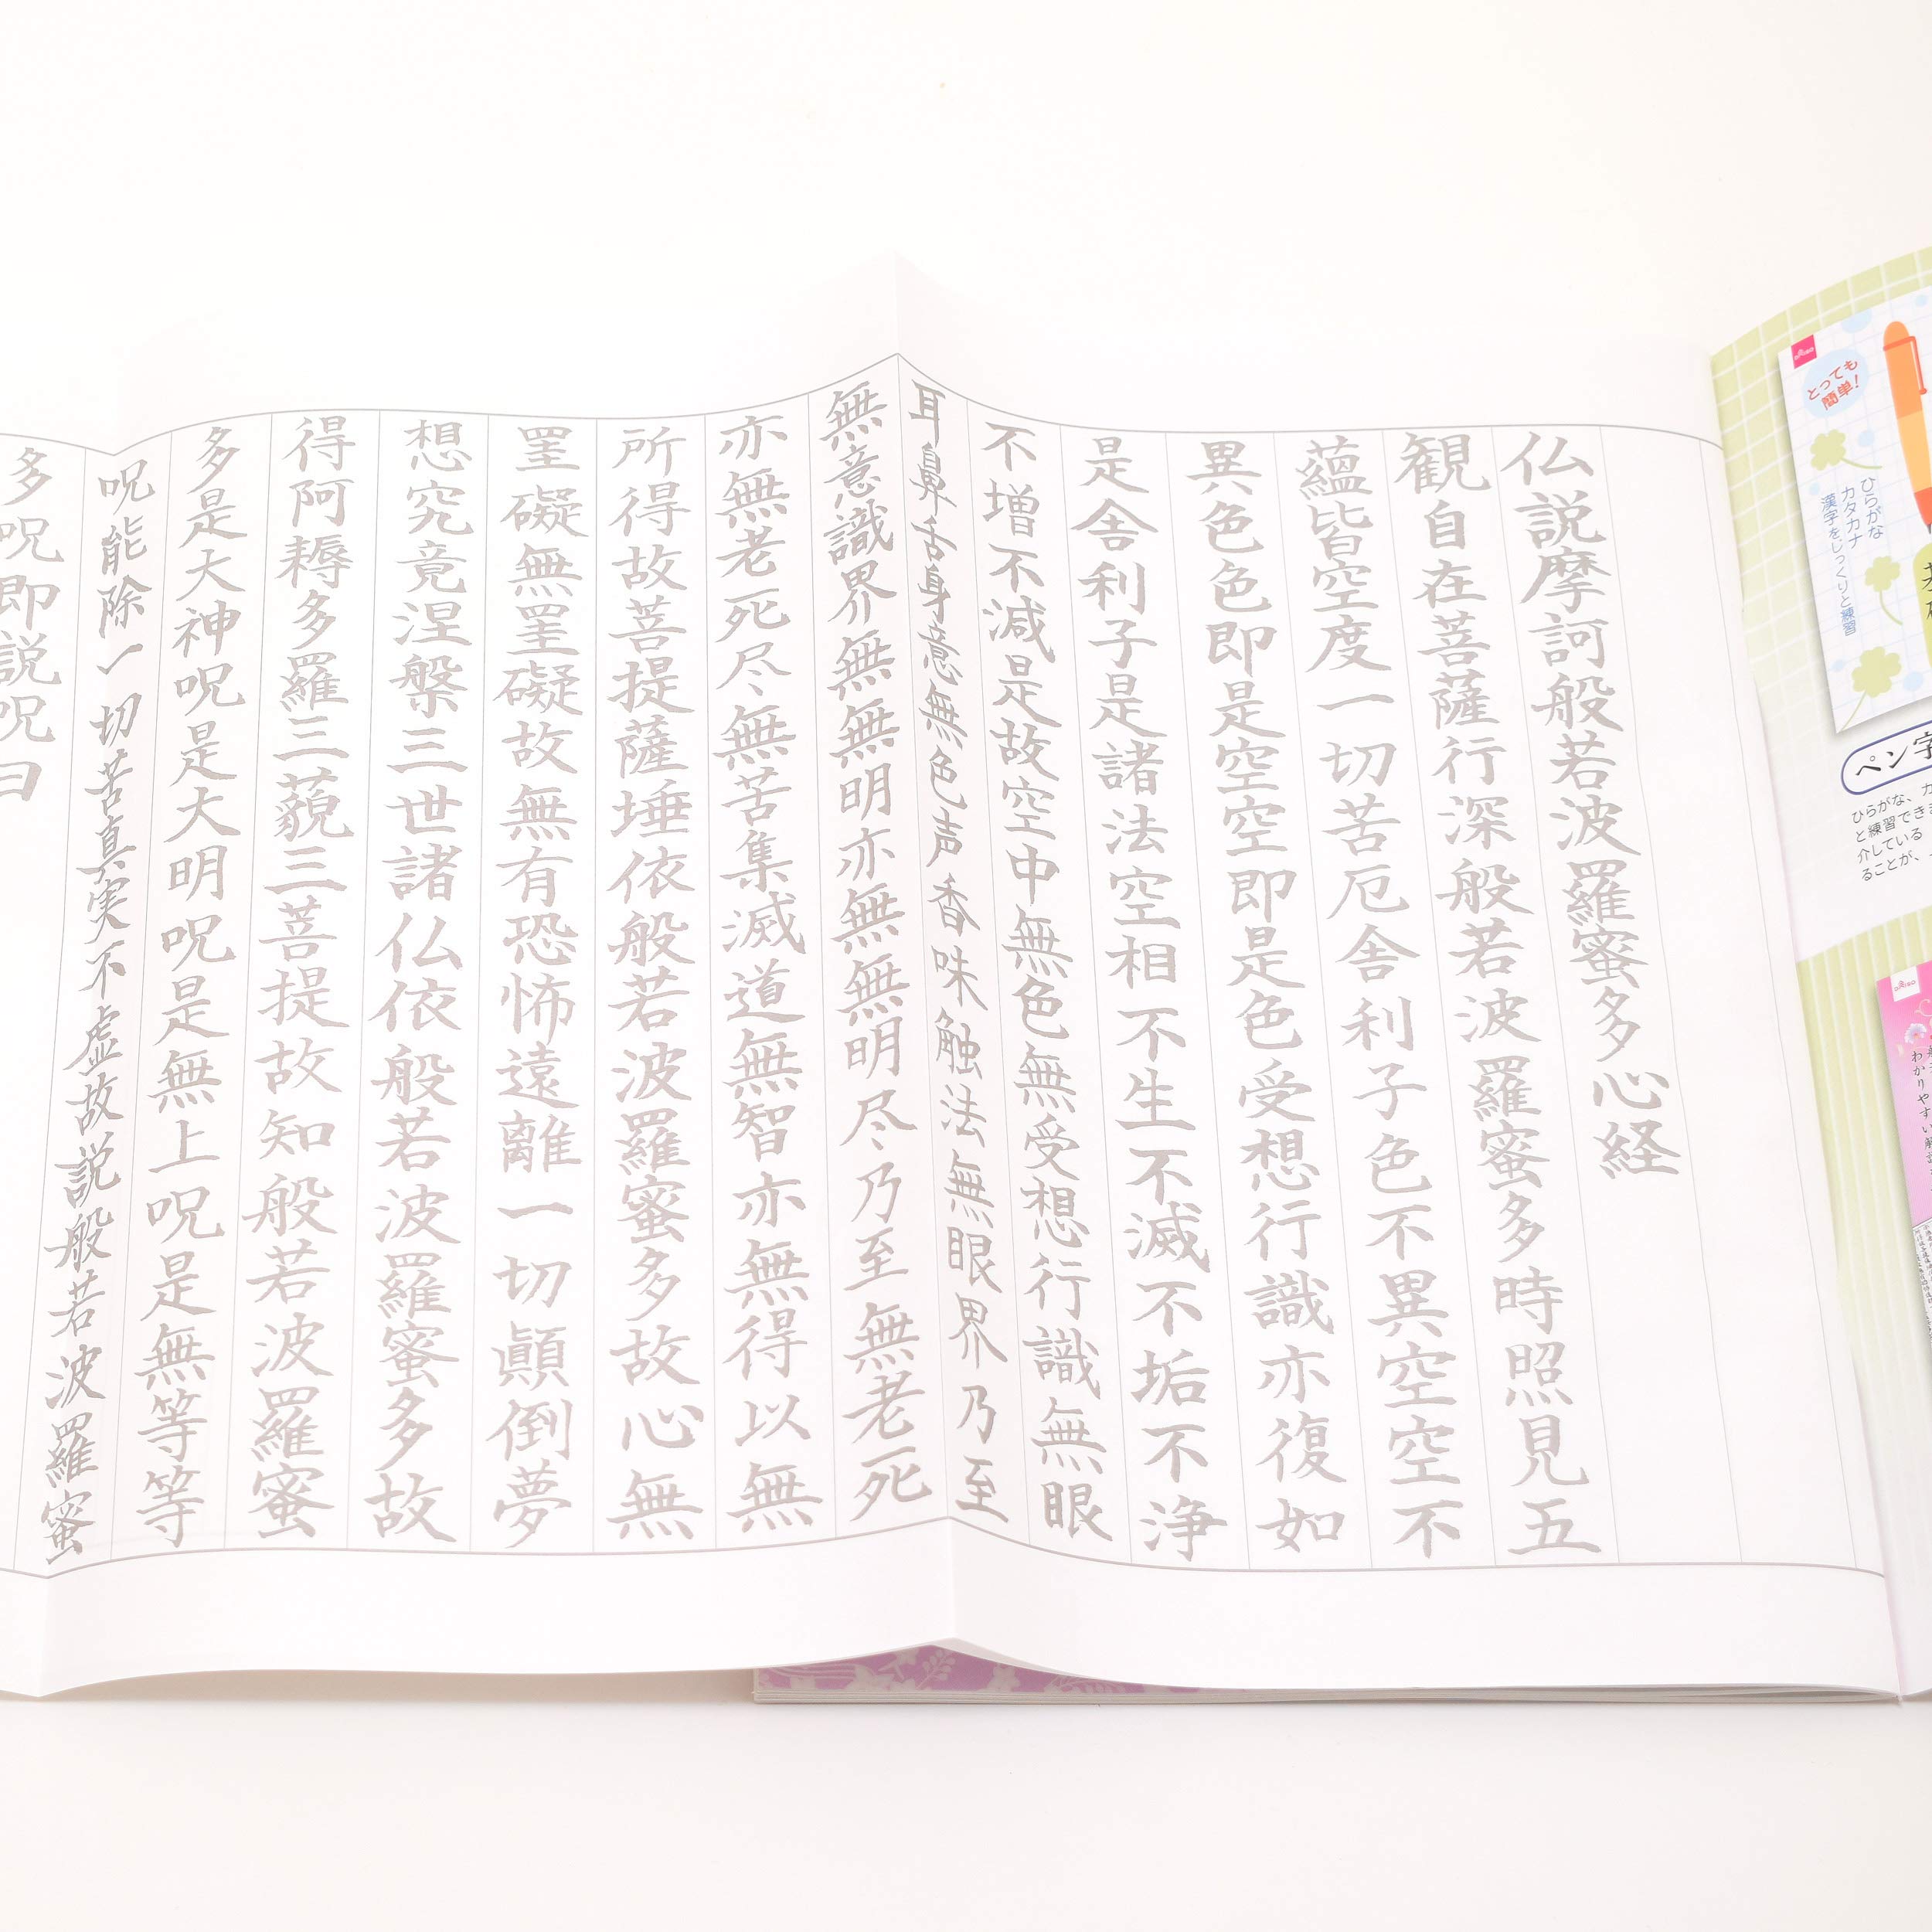 とっても
簡単!
ひらがな
カタカナ
漢字をじっくりと練習
ペン字
ひらがな、カ
と練習でき
介している
ることが、
わかりやすい
仏説摩訶般若波羅蜜多心経
観自在菩薩行深般若波羅蜜多時照見五
蘊皆空度一切苦厄舎利子色不異空空不
異色色即是空空即是色受想行識亦復如
是舎利子是諸法空相不生不滅不垢不浄
不増不減是故空中無色無受想行識無眼
耳鼻舌身意無色声香味触法無眼界乃至
無意識界無無明亦無無明尽乃至無老死
亦無老死尽無苦集滅道無智亦無得以無
所得故菩提薩埵依般若波羅蜜多故心無
罣礙無罣礙故無有恐怖遠離一切顛倒夢
想究竟涅槃三世諸仏依般若波羅蜜多故
得阿耨多羅三藐三菩提故知般若波羅蜜
多是大神呪是大明呪是無上呪是無等等
呪能除一切苦真実不虚故説般若波羅蜜
多呪即説呪曰